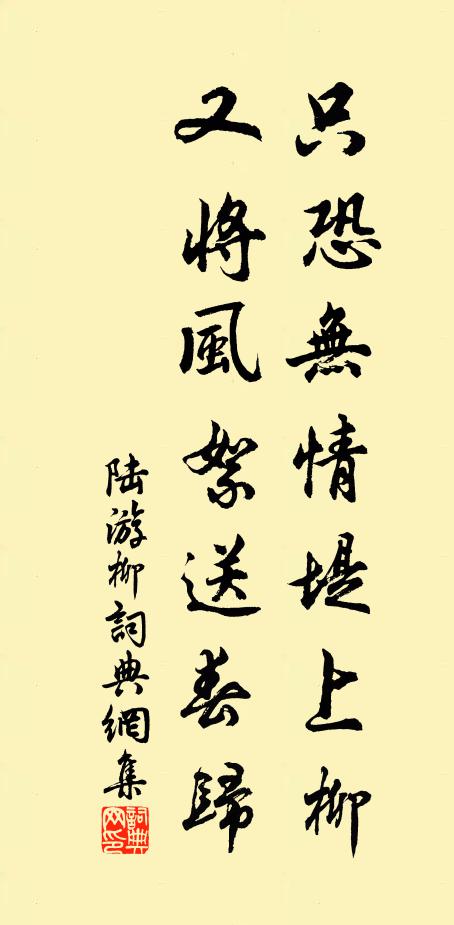 只恐無情堤上柳
又將風絮送春歸
陸游柳詞典網集
詞典網印